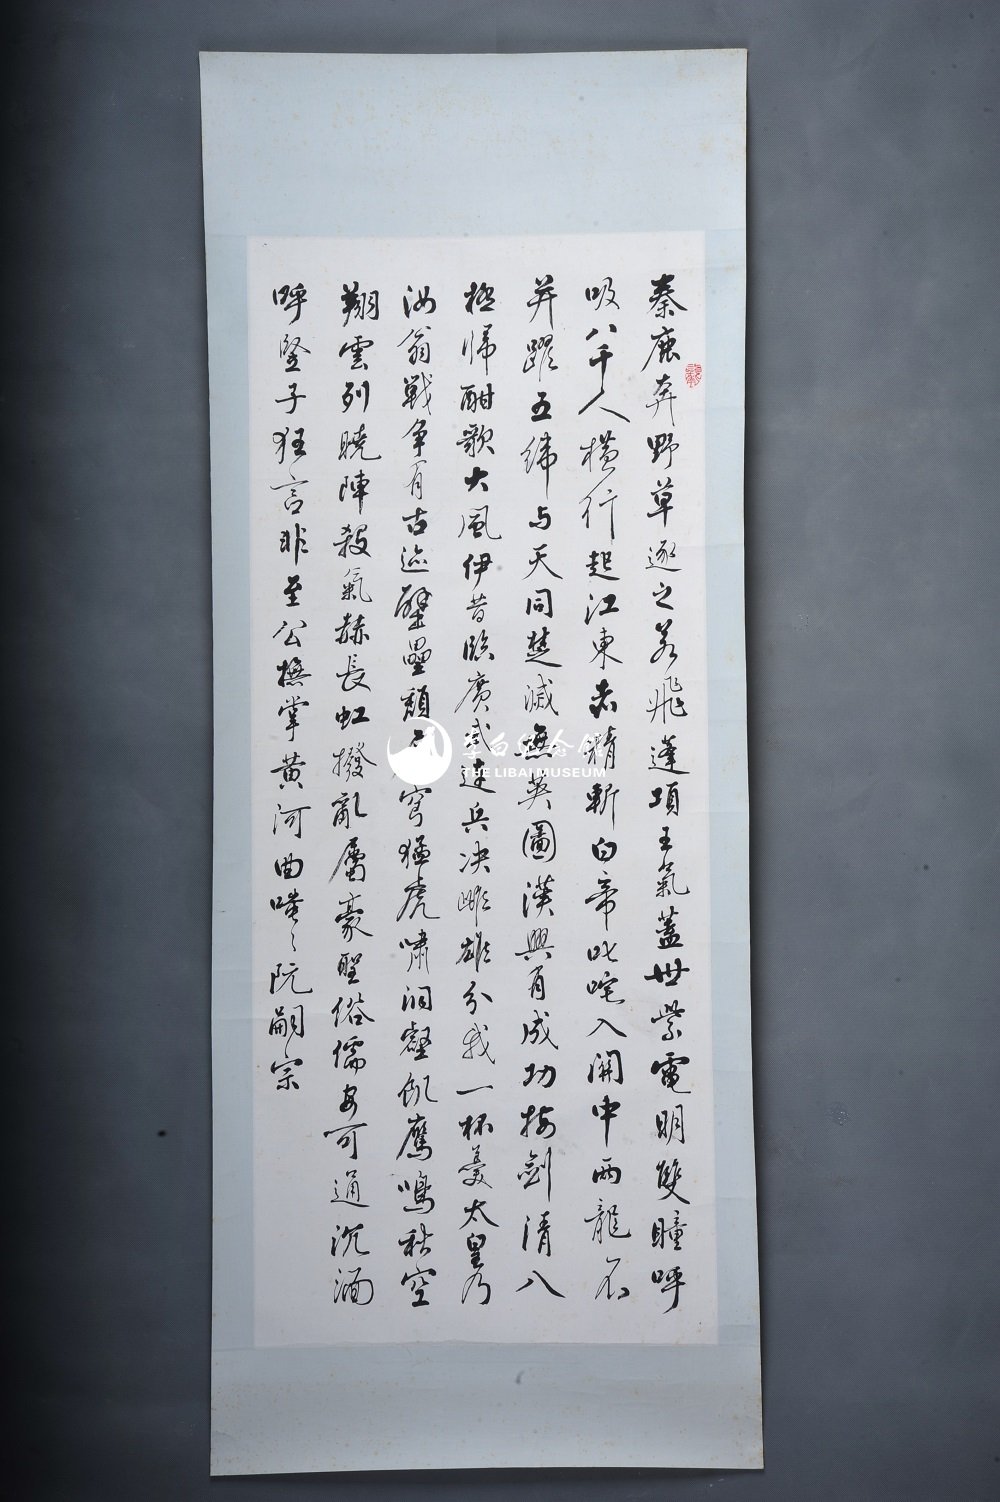 秦鹿奔野草逐之若飛蓬項王氣蓋世紫電明雙瞳呼
吸八千人橫行起江東赤精斬白帝叱咤入關中兩龍不
並躍五緯与天同楚滅無英圖漢興有成功按劍清八
極歸酣歌大風伊昔臨廣武連兵决雌雄分我一杯羹太皇乃
汝翁戰爭有古迹壁壘頹層穹猛虎嘯洞壑飢鷹鳴秋空
翔雲列曉陣殺氣赫長虹撥亂屬豪聖俗儒安可通沉湎
呼豎子狂言非至公撫掌黄河曲嗤々阮嗣宗
李白紀念館
THE LIBAI MUSEUM